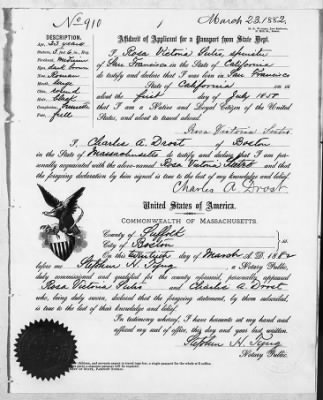 No 910
March 23. 1882.
DESCRIPTION.
Age, 23 years
Stature, 5 ft. 6 in.
Forehead, Medium
Eyes, dark brown
Nose, Roman
Mouth,
Chin, round
Hair, Black
Complexion, brunette
Face, full
Affidavit of Applicant for a Passport from State Dept.
I, Rosa Victoria Sutro, spinster
of San Francisco in the State of California
do testify and declare that I was born in San Francisco
State of California on or
about the first day of July 1858
That I am a Native and Loyal Citizen of the United
States, and about to travel abroad.
Rosa Victoria Sutro
I, Charles A. Drost of Boston
in the State of Massachusetts do testify and declare that I am per-
sonally acquainted with the above-named Rosa Victoria Sutro and that
the foregoing declaration by him signed is true to the best of my knowledge and belief.
Charles A Drost
United States of America.
COMMONWEALTH OF MASSACHUSETTS.
County of Suffolk
City of Boston } ss.
On this twentieth day of March A.D. 1882
before me Stephen H. Tyng, a Notary Public,
duly commissioned and qualified for the county aforesaid, personally appeared
Rosa Victoria Sutro and Charles A. Drost,
who, being duly sworn, declared that the foregoing statement, by them subscribed,
is true to the best of their knowledge and belief.
In testimony whereof, I have hereunto set my hand and
affixed my seal of office, this day and year last written.
Stephen H. Tyng
Notary Public.